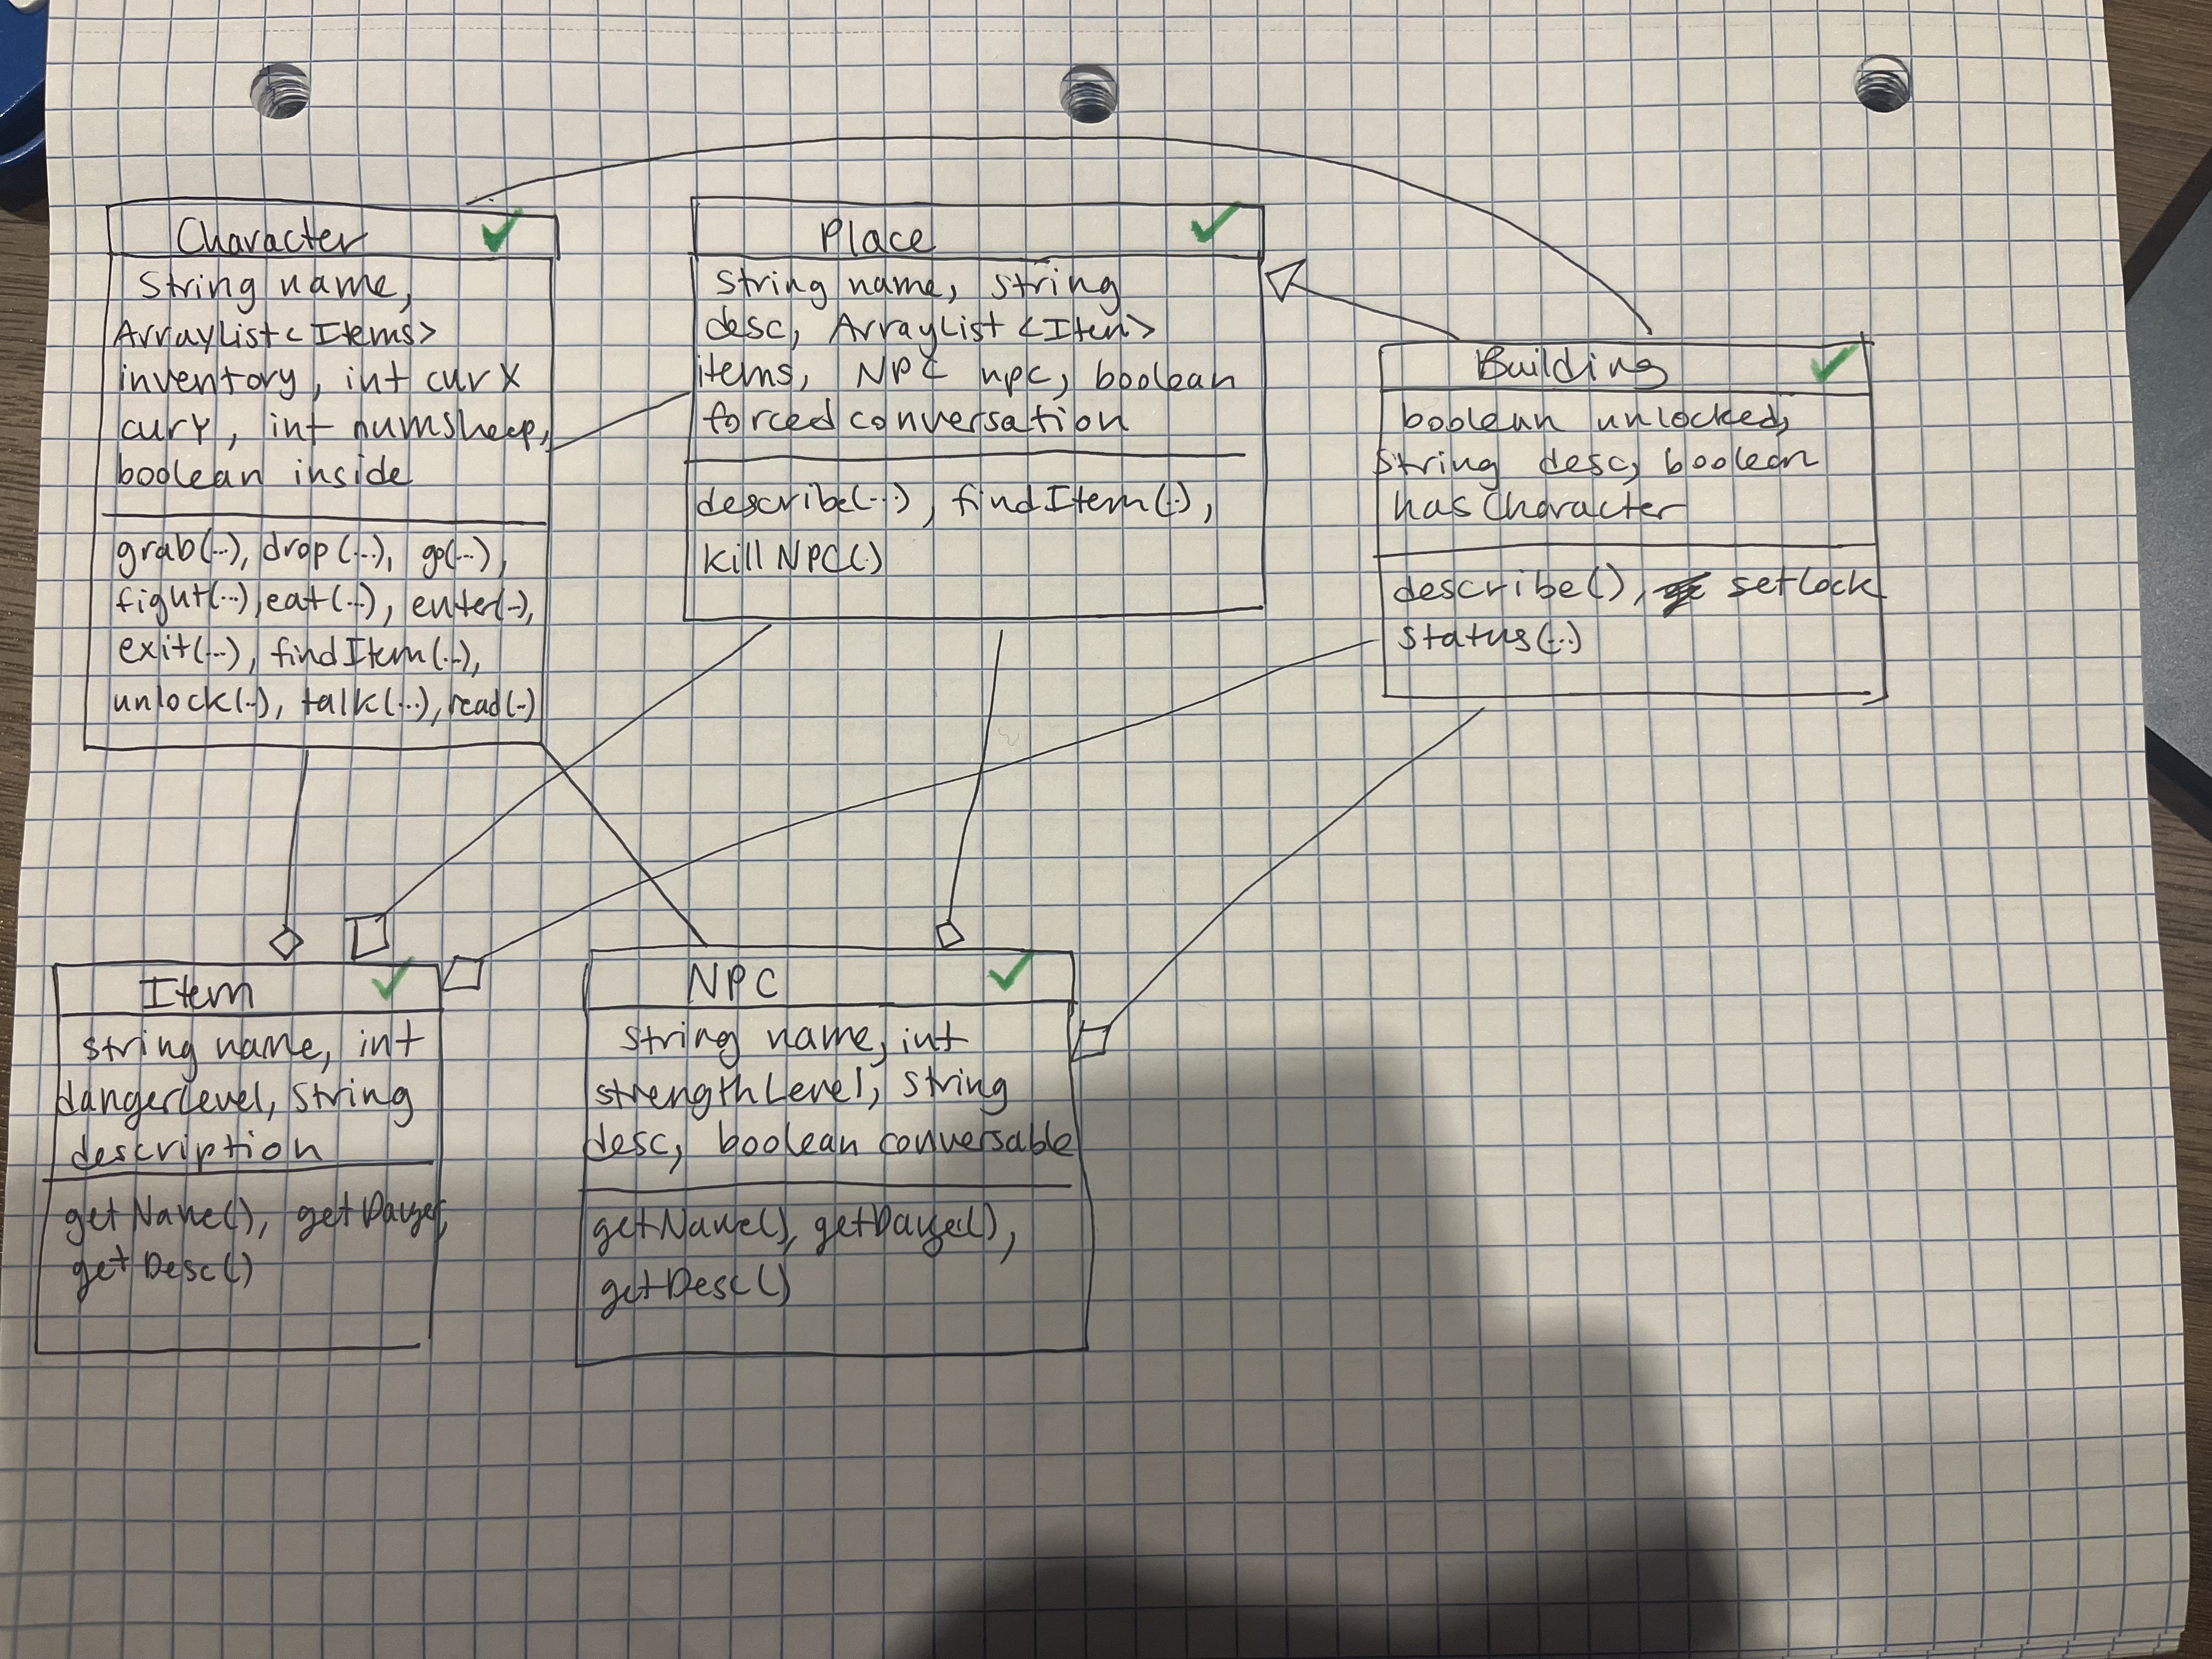 Character
String name,
ArrayList<Items>
inventory, int curX
curY, int numsheep,
boolean inside
grab(...), drop(...), go(...),
fight(...), eat(...), enter(..),
exit(...), findItem(...),
unlock(..), talk(...), read(..)
Place
String name, String
desc, ArrayList<Item>
items, NPC npc, boolean
forced conversation
describe(...), findItem(..),
killNPC()
Building
boolean unlocked,
String desc, boolean
hasCharacter
describe(), setLock
Status(...)
Item
String name, int
dangerLevel, String
description
getName(), getDanger,
getDesc()
NPC
String name, int
strengthLevel, String
desc, boolean conversable
getName(), getDanger(),
getDesc()